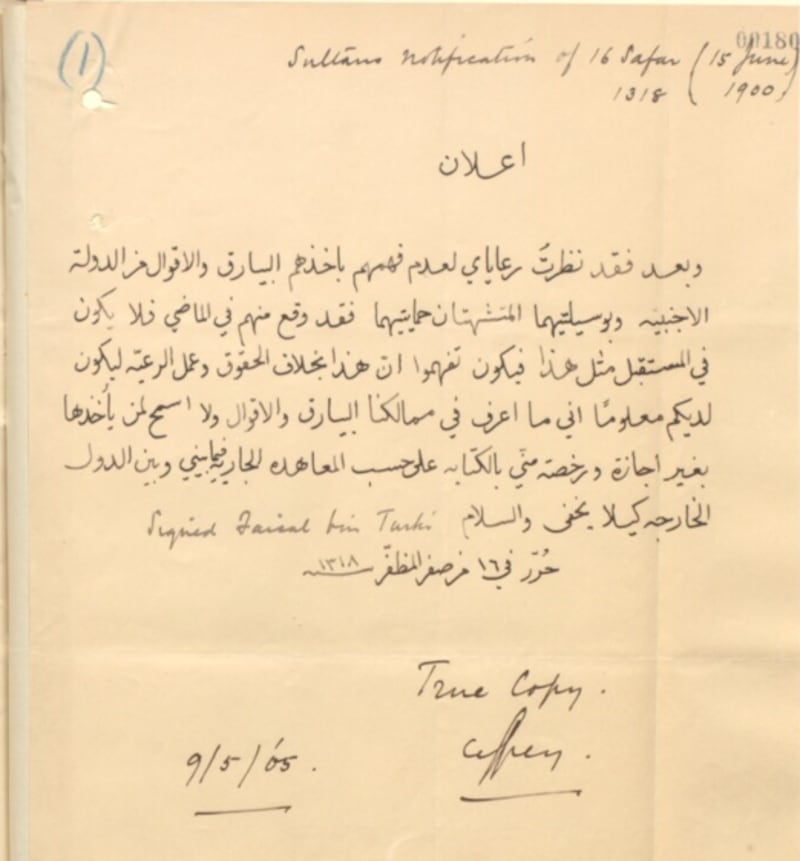 00180
(1)
Sultāns Notification of 16 Safar (15 June
1318 ( 1900)
اعلان
وبعد فقد نظرتُ رعاياي لعدم فهمهم باخذهم البيارق والاقوال من الدولة
الاجنبيه وبوسيلتيهما المتشهتان حمايتيهما فقد وقع منهم في الماضي فلا يكون
في المستقبل مثل هذا فيكون تفهموا انّ هذا بخلاف الحقوق وعمل الرعيّه ليكون
لديكم معلومًا اني ما اعرف في ممالكنا البيارق والاقوال ولا اسمح لمن يأخذها
بغير اجازة ورخصة منّي بالكتابه على حسب المعاهده الجاريه فيمابيني وبين الدول
الخارجه كيلا يخفى والسلام Signed Faisal bin Turki
حُرّر في ١٦ من صفر المظفّر سنه ١٣١٨
True Copy.
9/5/'05.